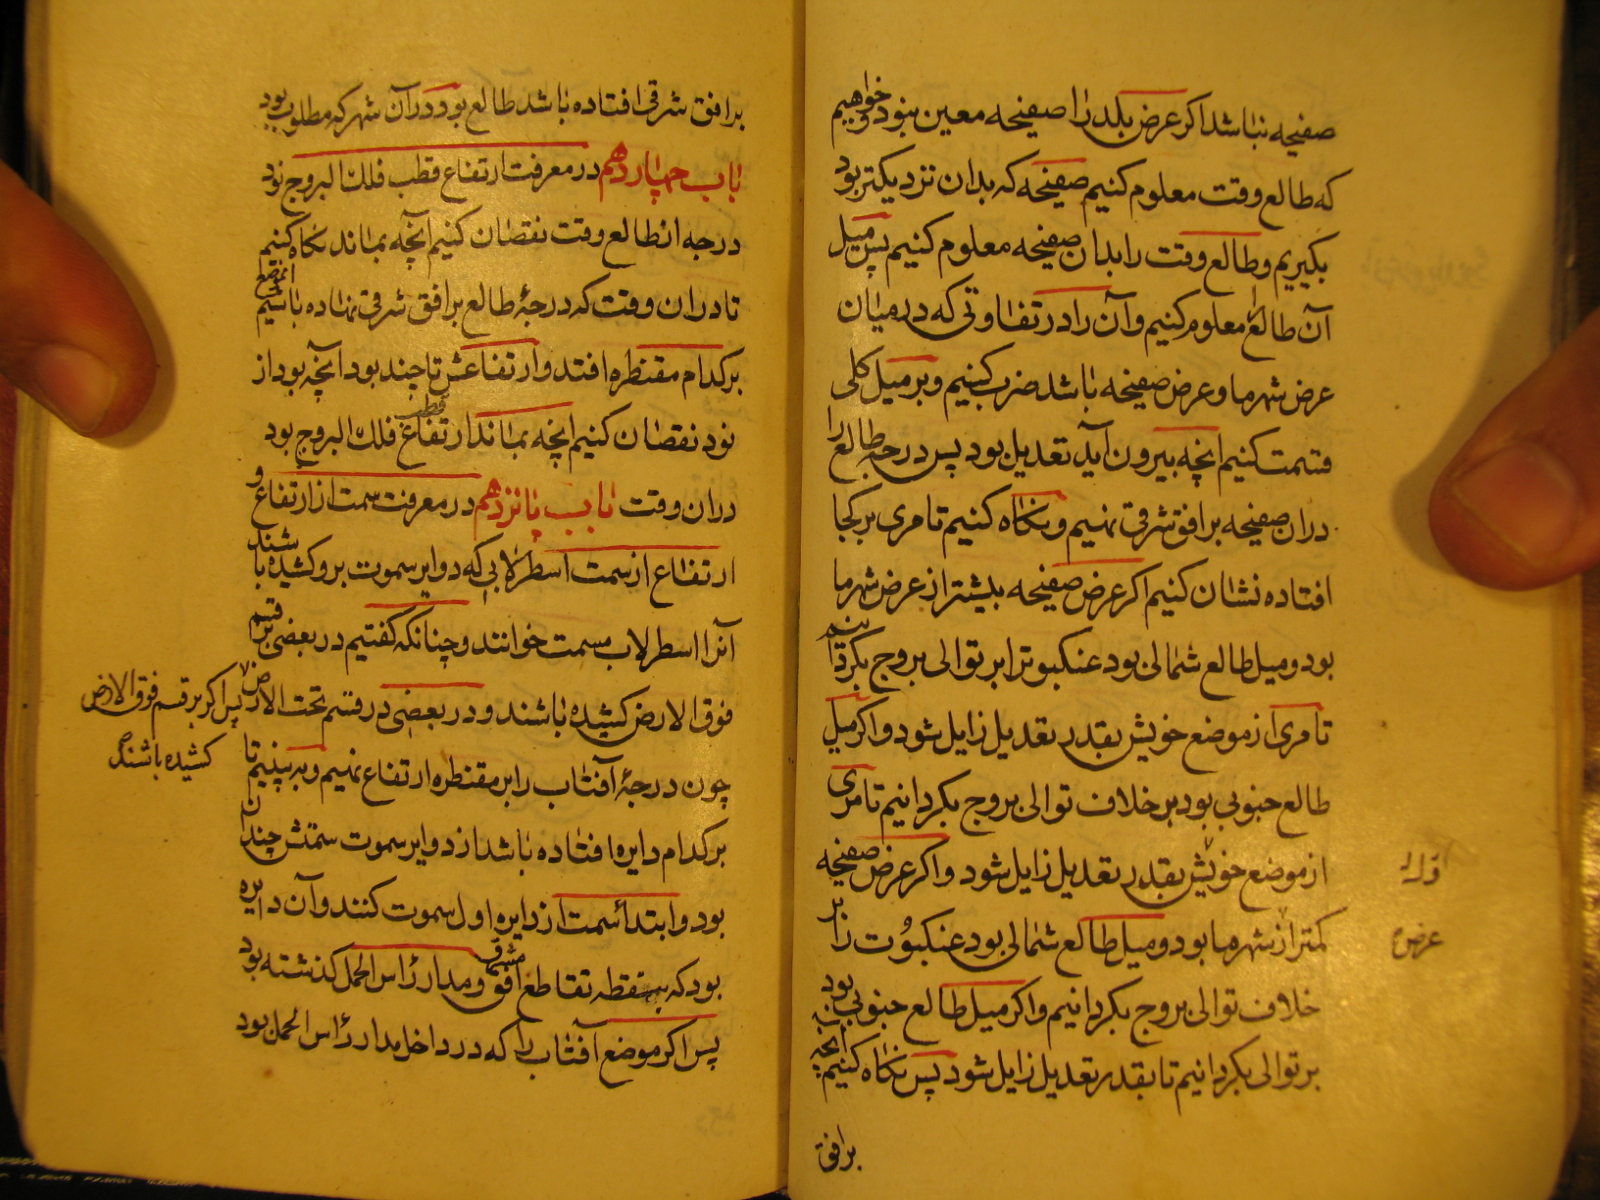 صفیحه نباشد اکر عرض بلد را صفیحه معین نبود و خواهیم
که طالع وقت معلوم کنیم صفیحه که بدان نزدیکتر بود
بکیریم و طالع وقت را بدان صفیحه معلوم کنیم پس میل
آن طالع را معلوم کنیم و آن را در تفاوتی که در میان
عرض شهر ما و عرض صفیحه باشد ضرب کنیم و بر میل کلی
قسمت کنیم انچه بیرون آید تعدیل بود پس درجه طالع را
دران صفیحه بر افق شرقی نهیم و نکاه کنیم تا مری بر کجا
افتاده نشان کنیم اکر عرض صفیحه بیشتر از عرض شهر ما
بود و میل طالع شمالی بود عنکبوترا بر توالی بروج بکردانیم
تا مری از موضع خویش بقدر تعدیل زایل شود و اکر میل
طالع جنوبی بود بر خلاف توالی بروج بکردانیم تا مری
از موضع خویش بقدر تعدیل زایل شود و اکر عرض صفیحه
کمتر از شهر ما بود و میل طالع شمالی بود عنکبوت را بر
عرض
خلاف توالی بروج بکردانیم و اکر میل طالع جنوبی بود
بر توالی بکردانیم تا بقدر تعدیل زایل شود پس نکاه کنیم انچه
بر افق
بر افق شرقی افتاده باشد طالع بود دران شهر که مطلوب بود
باب چهاردهم در معرفت ارتفاع قطب فلك البروج نود
درجه از طالع وقت نقصان کنیم انچه بماند نکاه کنیم
تا دران وقت که درجهٔ طالع بر افق شرقی نهاده باشیم
بر کدام مقنطره افتد و ارتفاعش تا چند بود آنچه بود از
نود نقصان کنیم انچه بماند ارتفاع قطب فلك البروج بود
دران وقت باب پانزدهم در معرفت سمت از ارتفاع و
ارتفاع از سمت اسطرلابی که دوایر سموت برو کشیده باشند
آنرا اسطرلاب مسمت خوانند و چنانکه کفتیم در بعضی بر قسم
فوق الارض کشیده باشند و در بعضی در قسم تحت الارض
پس اکر بر قسم فوق الارض
کشیده باشند
چون درجهٔ آفتاب را بر مقنطره ارتفاع نهیم و به بینیم تا
بر کدام دایره افتاده باشد از دوایر سموت سمتش چندان
بود و ابتداء سمت از دایره اول سموت کنند و آن دایره
بود که بنقطه تقاطع افق مشرق و مدار رأس الحمل کذشته بود
پس اکر موضع آفتاب را که در داخل مدار رأس الحمل بود